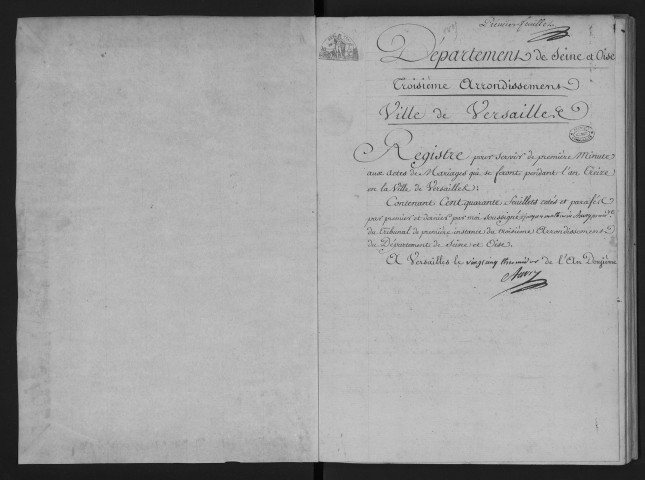 Premier feuillet
Département de Seine et Oise
Troisième Arrondissement
Ville de Versailles
Registre pour servir de première Minute
aux actes de Mariages qui se feront pendant l'an treize
en la Ville de Versailles;
Contenant Cent quarante feuillets cotés et paraféz
par premier et dernier par moi soussigné
du Tribunal de première instance du troisième Arrondissement
du Département de Seine et Oise.
A Versailles le vingt cinq thermidor de l'An Douzième